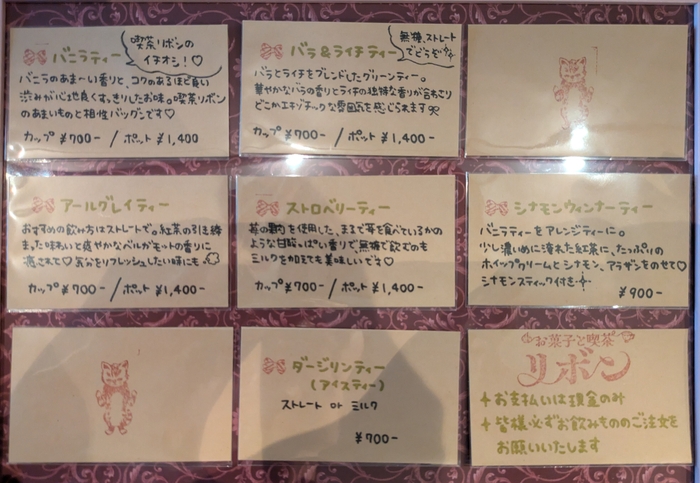 バニラティー
喫茶リボンの
イチオシ!♡
バニラのあま〜い香りと、コクのあるほど良い
渋みが心地良くすっきりしたお味。喫茶リボン
のあまいものと相性バツグンです♡
カップ ¥700- / ポット ¥1,400
バラ&ライチティー
無糖、ストレート
でどうぞ
バラとライチをブレンドしたグリーンティー。
華やかなバラの香りとライチの独特な香りが合わさり
どこかエキゾチックな雰囲気を感じられます
カップ ¥700- / ポット ¥1,400-
アールグレイティー
おすすめの飲み方はストレートで。紅茶の引き締
まった味わいと爽やかなベルガモットの香りに
癒されて♡気分をリフレッシュしたい時にも
カップ ¥700- / ポット ¥1,400-
ストロベリーティー
苺の
を使用した、ままで苺を食べているかの
ような甘酸っぱい香りで、無糖で飲むのも
ミルクを加えても美味しいです♡
カップ ¥700- / ポット ¥1,400-
シナモンウィンナーティー
バニラティーをアレンジティーに。
少し濃いめに淹れた紅茶に、たっぷりの
ホイップクリームとシナモン、アラザンをのせて♡
シナモンスティック付き
¥900-
ダージリンティー
(アイスティー)
ストレート or ミルク
¥700-
お菓子と喫茶
リボン
+お支払いは現金のみ
+皆様必ずお飲みもののご注文を
お願いいたします